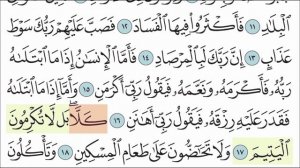 ٱلۡبِلَٰدِ ١١ فَأَكۡثَرُواْ فِيهَا ٱلۡفَسَادَ ١٢ فَصَبَّ عَلَيۡهِمۡ رَبُّكَ سَوۡطَ
عَذَابٍ ١٣ إِنَّ رَبَّكَ لَبِٱلۡمِرۡصَادِ ١٤ فَأَمَّا ٱلۡإِنسَٰنُ إِذَا مَا ٱبۡتَلَىٰهُ
رَبُّهُۥ فَأَكۡرَمَهُۥ وَنَعَّمَهُۥ فَيَقُولُ رَبِّيٓ أَكۡرَمَنِ ١٥ وَأَمَّآ إِذَا مَا ٱبۡتَلَىٰهُ
فَقَدَرَ عَلَيۡهِ رِزۡقَهُۥ فَيَقُولُ رَبِّيٓ أَهَٰنَنِ ١٦ كَلَّاۖ بَل لَّا تُكۡرِمُونَ
ٱلۡيَتِيمَ ١٧ وَلَا تَحَٰٓضُّونَ عَلَىٰ طَعَامِ ٱلۡمِسۡكِينِ ١٨ وَتَأۡكُلُونَ